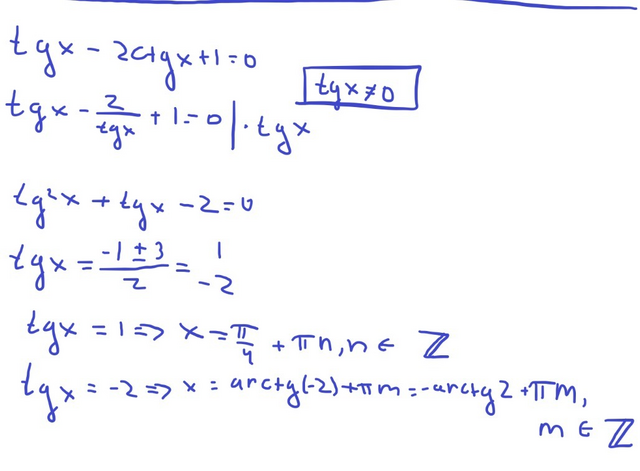 tgx - 2ctgx + 1 = 0
tgx ≠ 0
tgx - 2/tgx + 1 = 0 | · tgx
tg²x + tgx - 2 = 0
tgx = (-1 ± 3)/2 = 1
-2
tgx = 1 => x = π/4 + πn, n ∈ ℤ
tgx = -2 => x = arctg(-2) + πm = -arctg2 + πm,
m ∈ ℤ